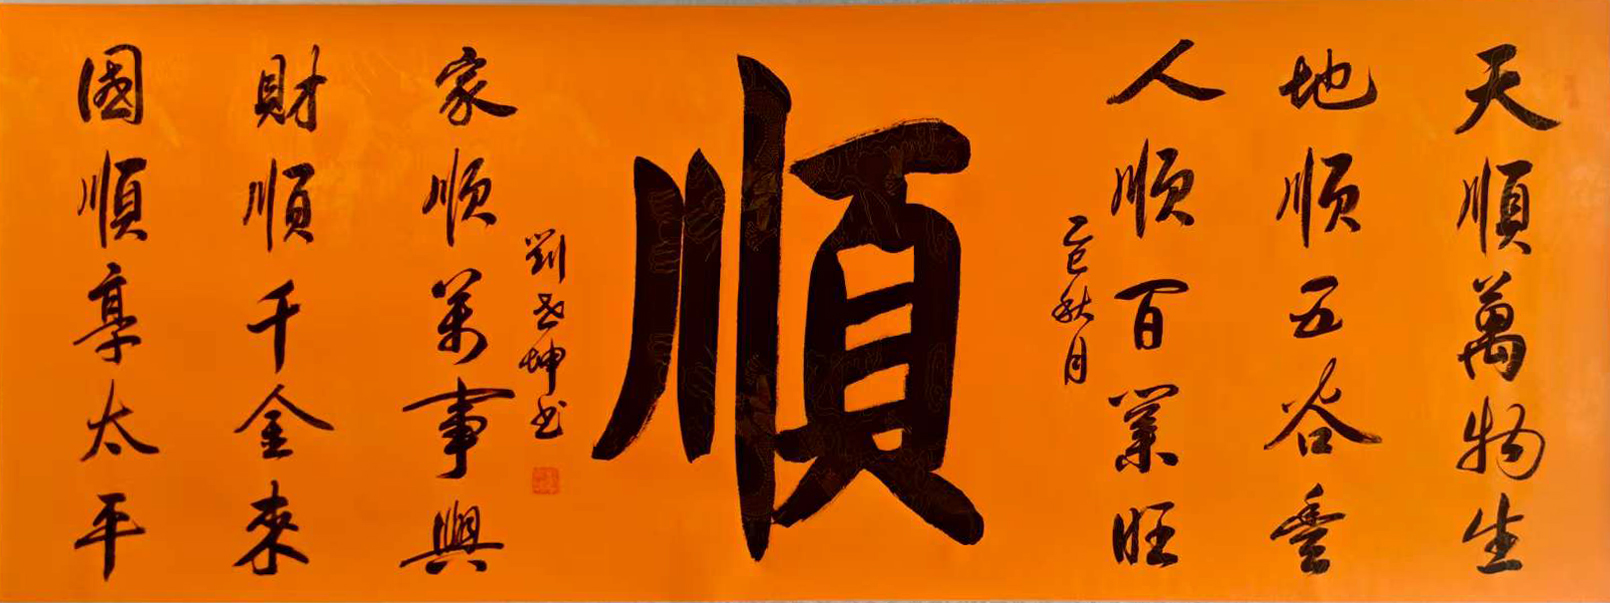 天順萬物生
地順五谷豐
人順百業旺
乙巳秋月
順
劉坤书
家順萬事興
財順千金來
國順享太平